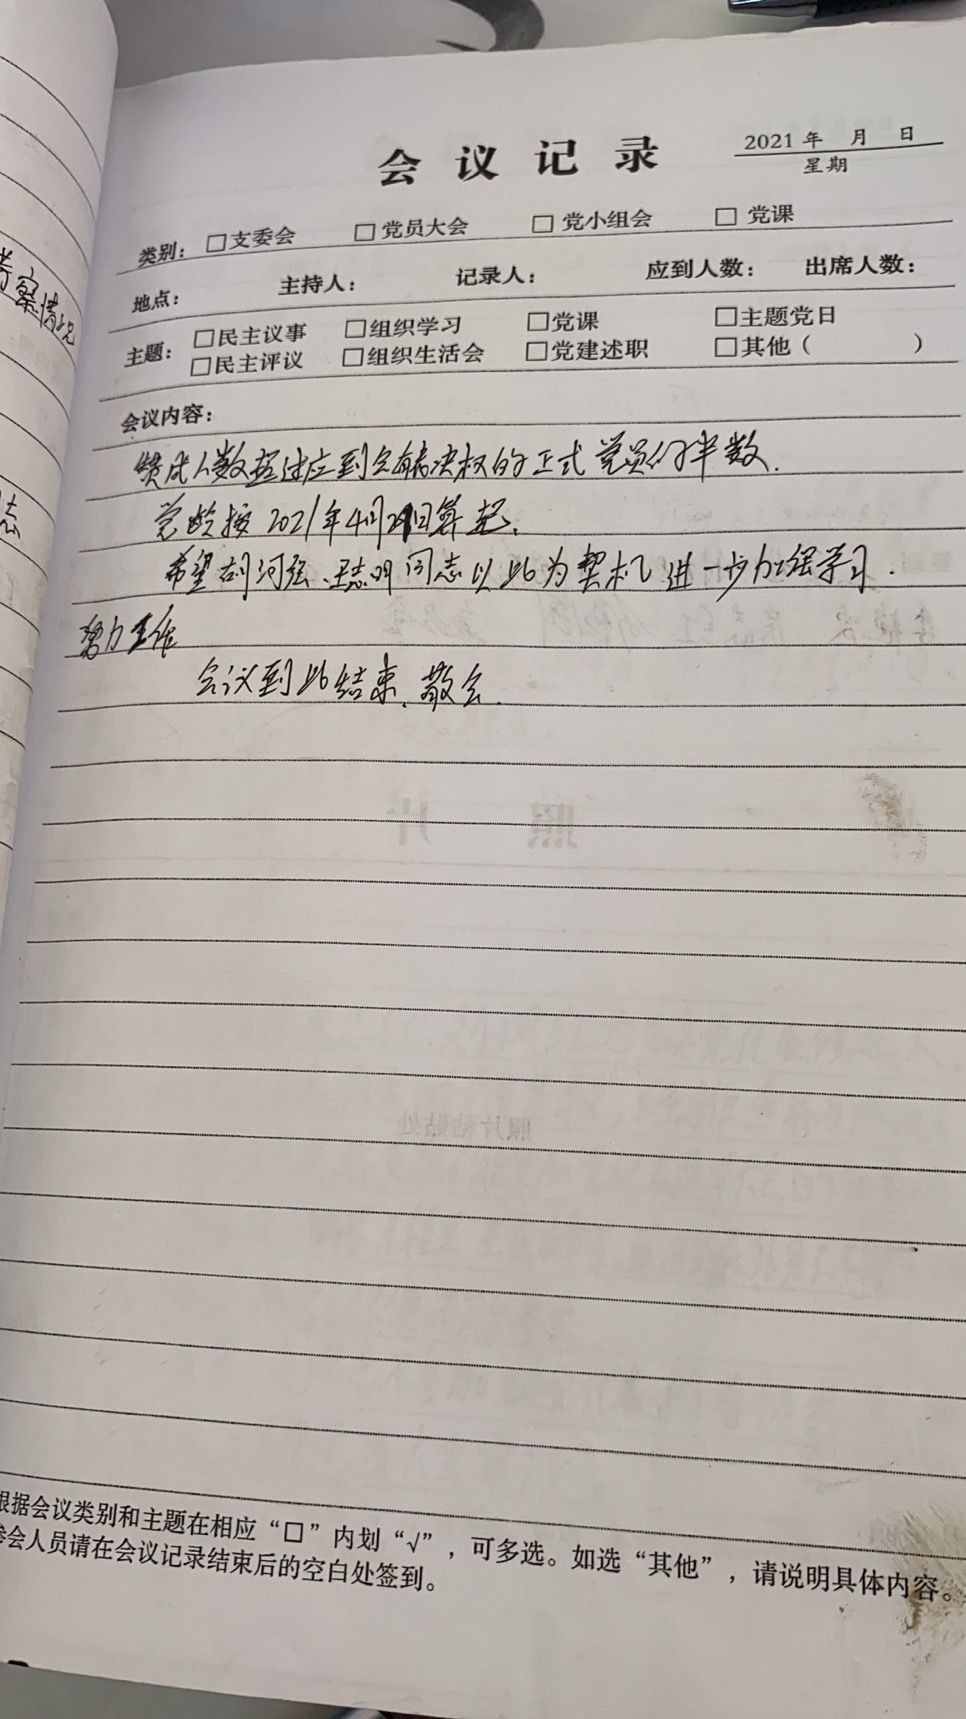 会议记录
2021年 月 日
星期
类别：□支委会 □党员大会 □党小组会 □党课
地点： 主持人： 记录人： 应到人数： 出席人数：
主题：□民主议事 □组织学习 □党课 □主题党日
□民主评议 □组织生活会 □党建述职 □其他（ ）
会议内容：
赞成人数超过应到会有表决权的正式党员的半数.
党龄按2021年4月21日算起.
希望胡河强、王志明同志以此为契机进一步加强学习.
努力工作
会议到此结束、散会.
根据会议类别和主题在相应“□”内划“√”，可多选。如选“其他”，请说明具体内容。
参会人员请在会议记录结束后的空白处签到。
考察情况
志
照 片
照片粘贴处